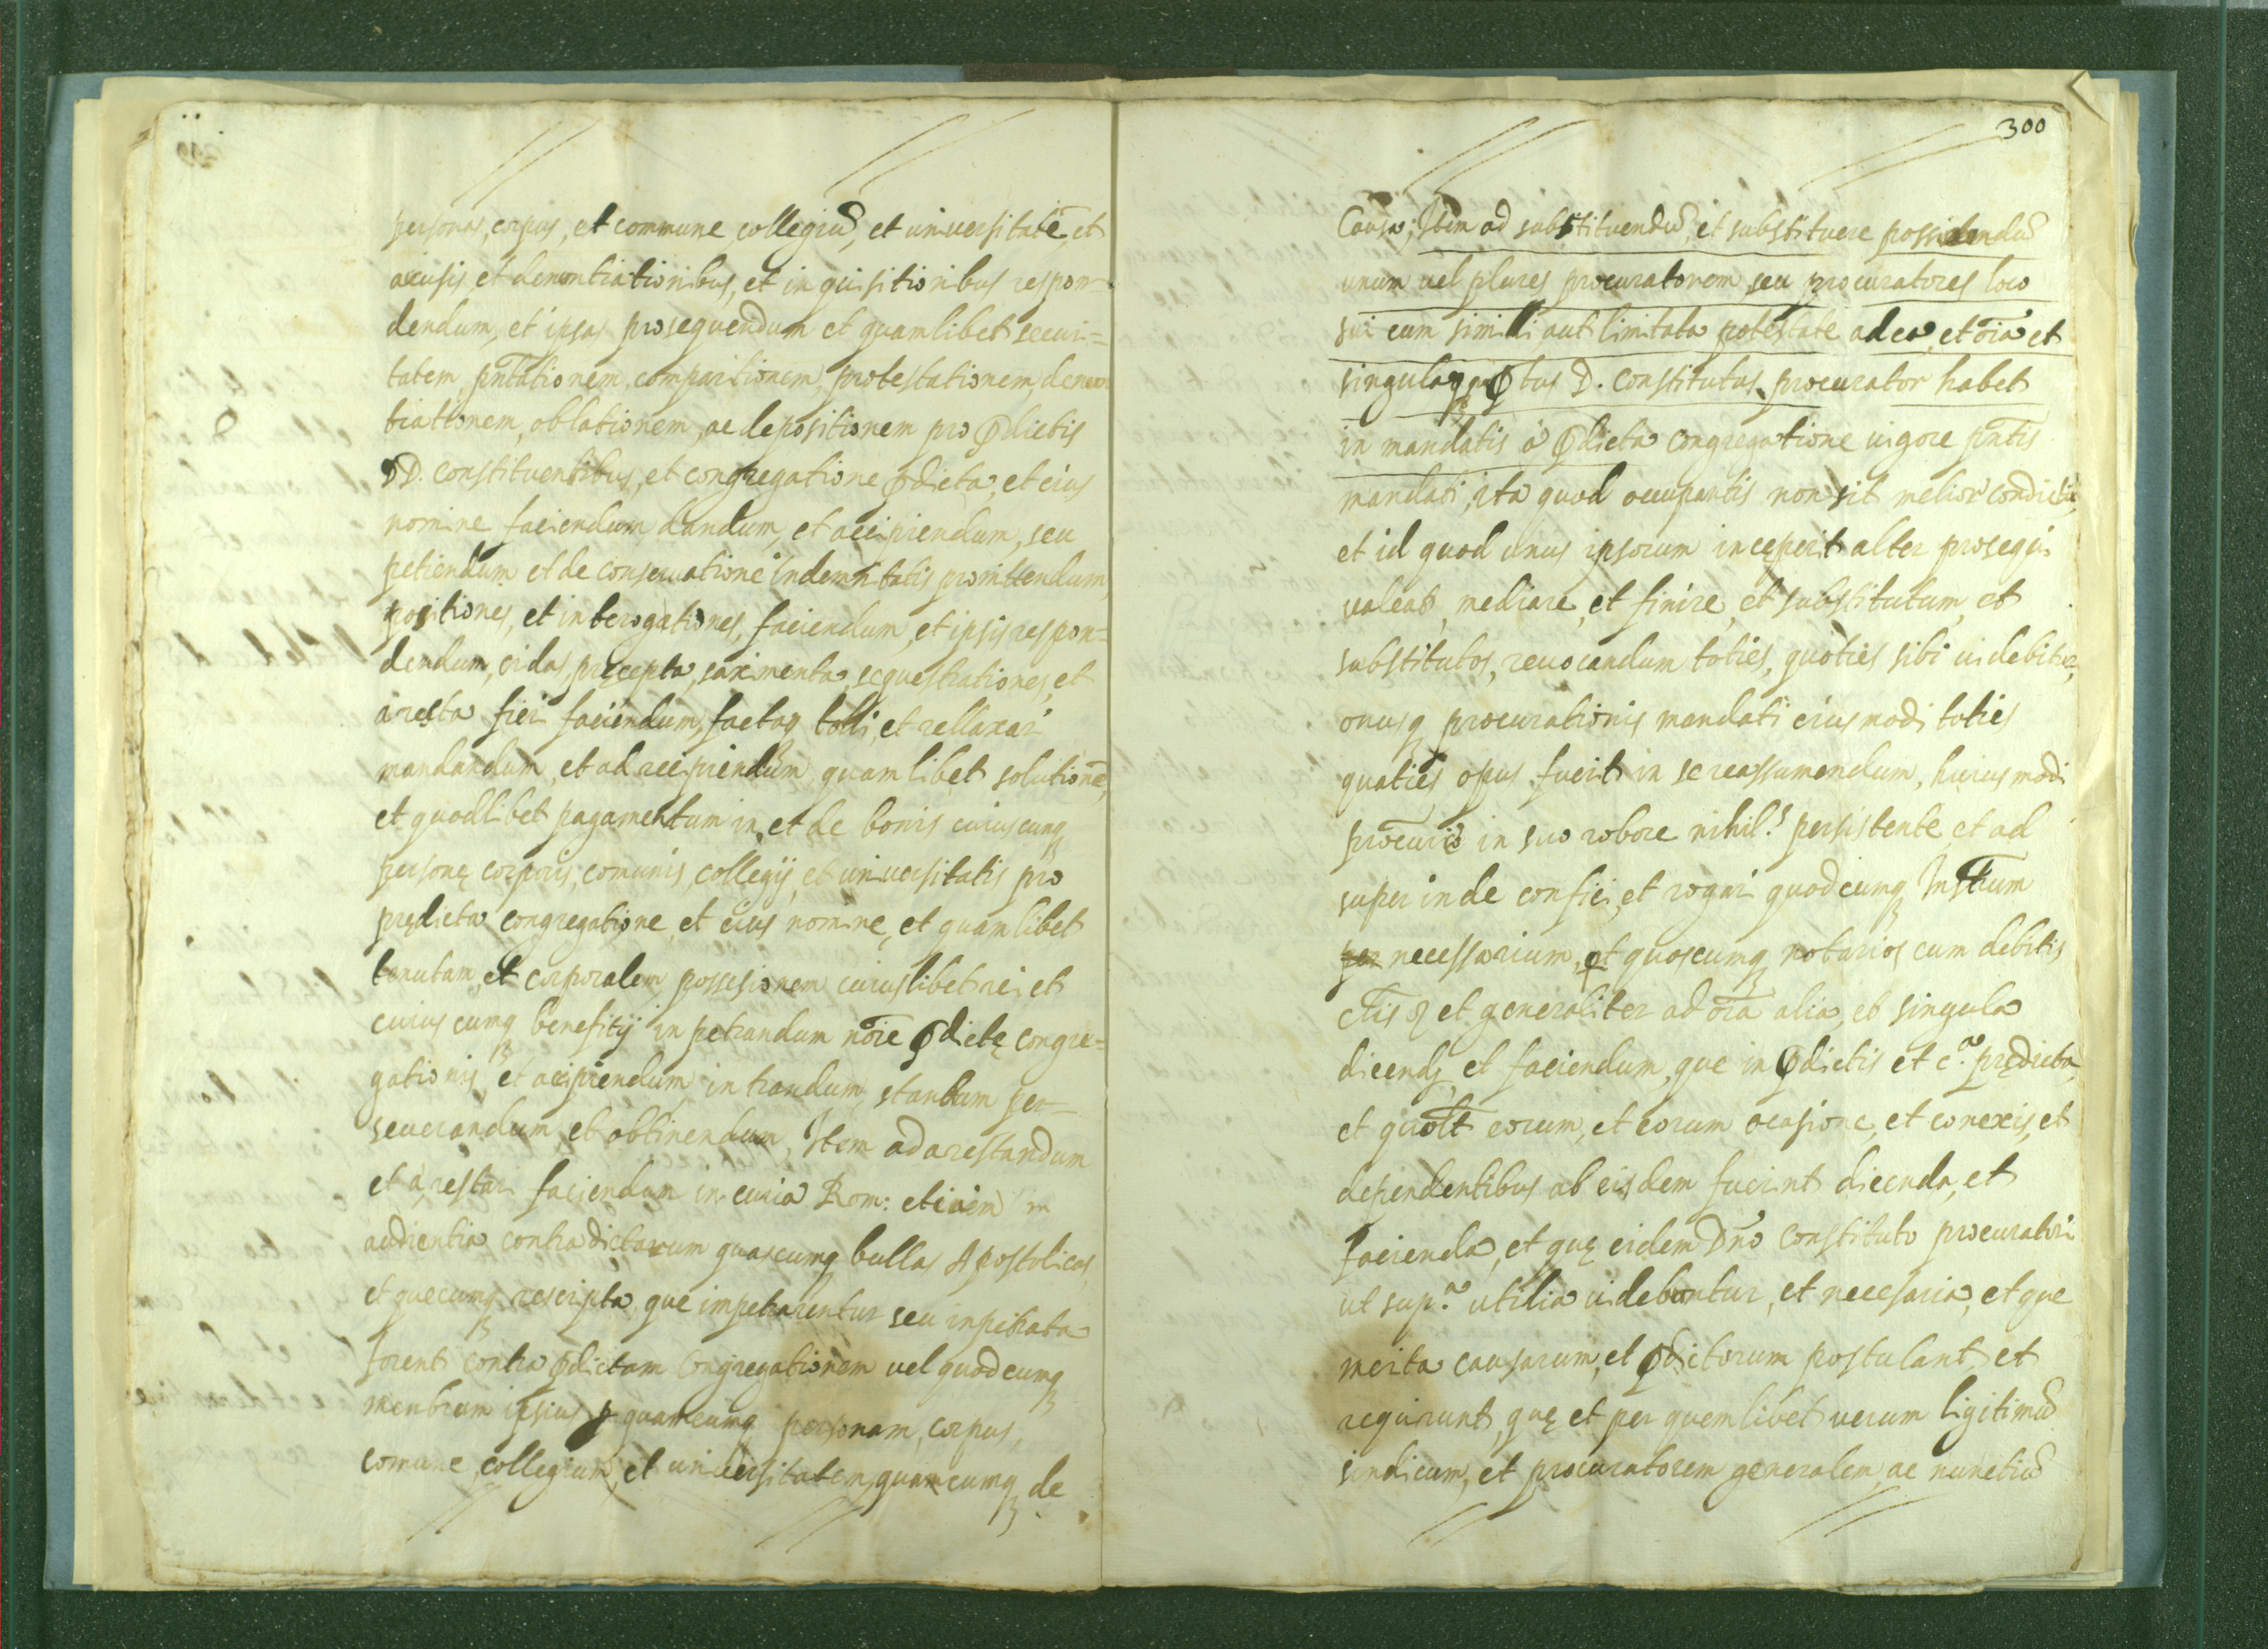 personas, corpus, et commune collegiū, et uniuersitatē, et
acusis, et denontiationibus, et inquisitionibus respon-
dendum, et ipsas prosequendum et quamlibet securi=
tatem, pñtationem comparitionem, protestationem, denon
tiationem, oblationem, ac depositionem pro p̄dictis
DD. constituentibus, et congregatione p̄dicta, et eius
nomine faciendum, dandum, et accipiendum, seu
petiendum et de conseruatione indemnitatis promittendum
positiones, et interogationes, faciendum, et ipsis respon=
dendum, cridas, pręcepta, saximenta, sequestrationes, et
aresta fieri faciendum, factaq tolli, et rellaxari
mandandum, et ad recipiendum quamlibet solutionē,
et quodlibet pagamentum in, et de bonis cuiuscunq
personę corporis, comunis, collegij, et uniuersitatis pro
prędicta congregatione, et eius nomine, et quamlibet
tenutam, et corporalem possesionem cuiuslibet rei, et
cuius cumq benefitij inpetrandum nōie p̄dictę congre=
gationis, et accipiendum, intrandum, standum per=
seuerandum, et obtinendum, Item ad arestandum
et arestari faciendum in curia Rom: etiām in
audientia contradictarum quascumq bullas Apostolicas,
et quecumq rescripta, que impetrarentur seu inpetrata
forent contra p̄dictam Congregationem uel quodcumq
menbrum ipsius p quamcumq personam, corpus,
comune, collegium, et uniuersitatem, quamcumq de
300
Causa; Item ad substituendū, et substituere possidendū
unum uel plures procuratorem seu procuratores loco
sui cum simili aut limitata potestate ad ea, et oīa et
singula, q p̄tus D. Constitutus procurator habet
in mandatis à p̄dicta Congregatione uigore pñtis
mandati, ita quod occupantis non sit melior condictio,
et id quod unus ipsorum incęperit alter prosequi
ualeat, mediare, et finire, et substitutum, et
substitutos, reuocandum toties, quoties sibi uidebitur,
onusq procurationis mandati eiusmodi toties
quoties opus fuerit in se reassumendum, huiusmodi
procurio in suo robore nihil.s persistente, et ad
super inde confici, et rogari quodcumq Instrum
per necessarium, p quoscumq notarios cum debitis
clis et generaliter ad oīa alia, et singula
dicend, et faciendum, que in p̄dictis et c.a prędicta,
et quolt eorum, et eorum ocasione, et conexis, et
dependentibus ab eisdem fuerint dicenda, et
facienda, et quę eidem Dño Constituto procuratori
ut sup.a utilia uidebuntur, et necesaria, et que
merita causarum, et p̄dictorum postulant, et
requirunt, quę et per quemlibet uerum ligitimū
sindicum, et procuratorem generalem, ac nunctiū